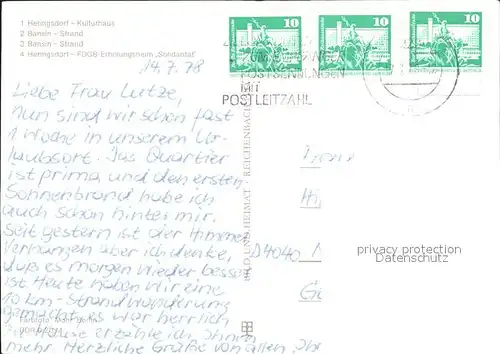 1 Heringsdorf - Kulturhaus
2 Bansin - Strand
3 Bansin - Strand
4 Heringsdorf - FDGB-Erholungsheim „Solidarität"
10 10 10
POSTSENDUNGEN
MIT
POSTLEITZAHL
14.7.78
Liebe Frau Lutze,
nun sind wir schon fast
1 Woche in unserem Ur-
laubsort. Das Quartier
ist prima und den ersten
Sonnenbrand habe ich
auch schon hinter mir.
Seit gestern ist der Himmel
verhangen aber ich denke,
daß es morgen wieder besser
ist. Heute haben wir eine
10 km-Strandwanderung
gemacht, es war herrlich
Hause erzähle ich Ihnen
mehr Herzliche Grüße von allen Ihr
BILD UND HEIMAT · REICHENBACH
D4040
privacy protection
Datenschutz